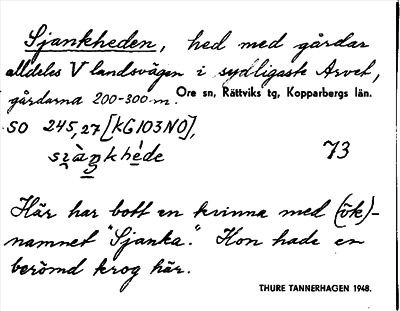 Sjankheden, hed med gårdar
alldeles V landsvägen i sydligaste Arvet,
gårdarna 200-300 m. Ore sn, Rättviks tg, Kopparbergs län.
SO 245,27 [KG103NO],
73
Här har bott en kvinna med (ök)-
namnet "Sjanka". Hon hade en
berömd krog här.
THURE TANNERHAGEN 1948.